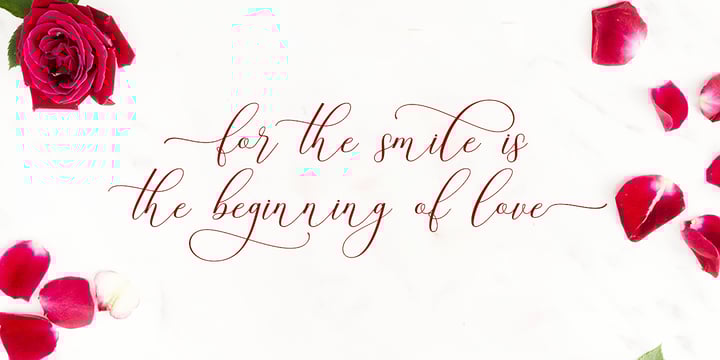 for the smile is
the beginning of love